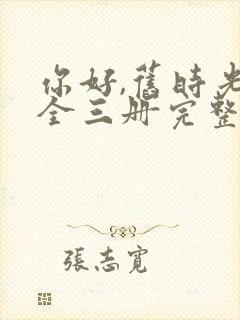 你好,舊時光
全三册完整
張志寬